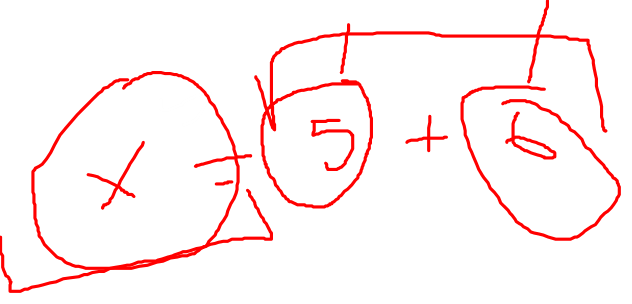 x = 5 + 6